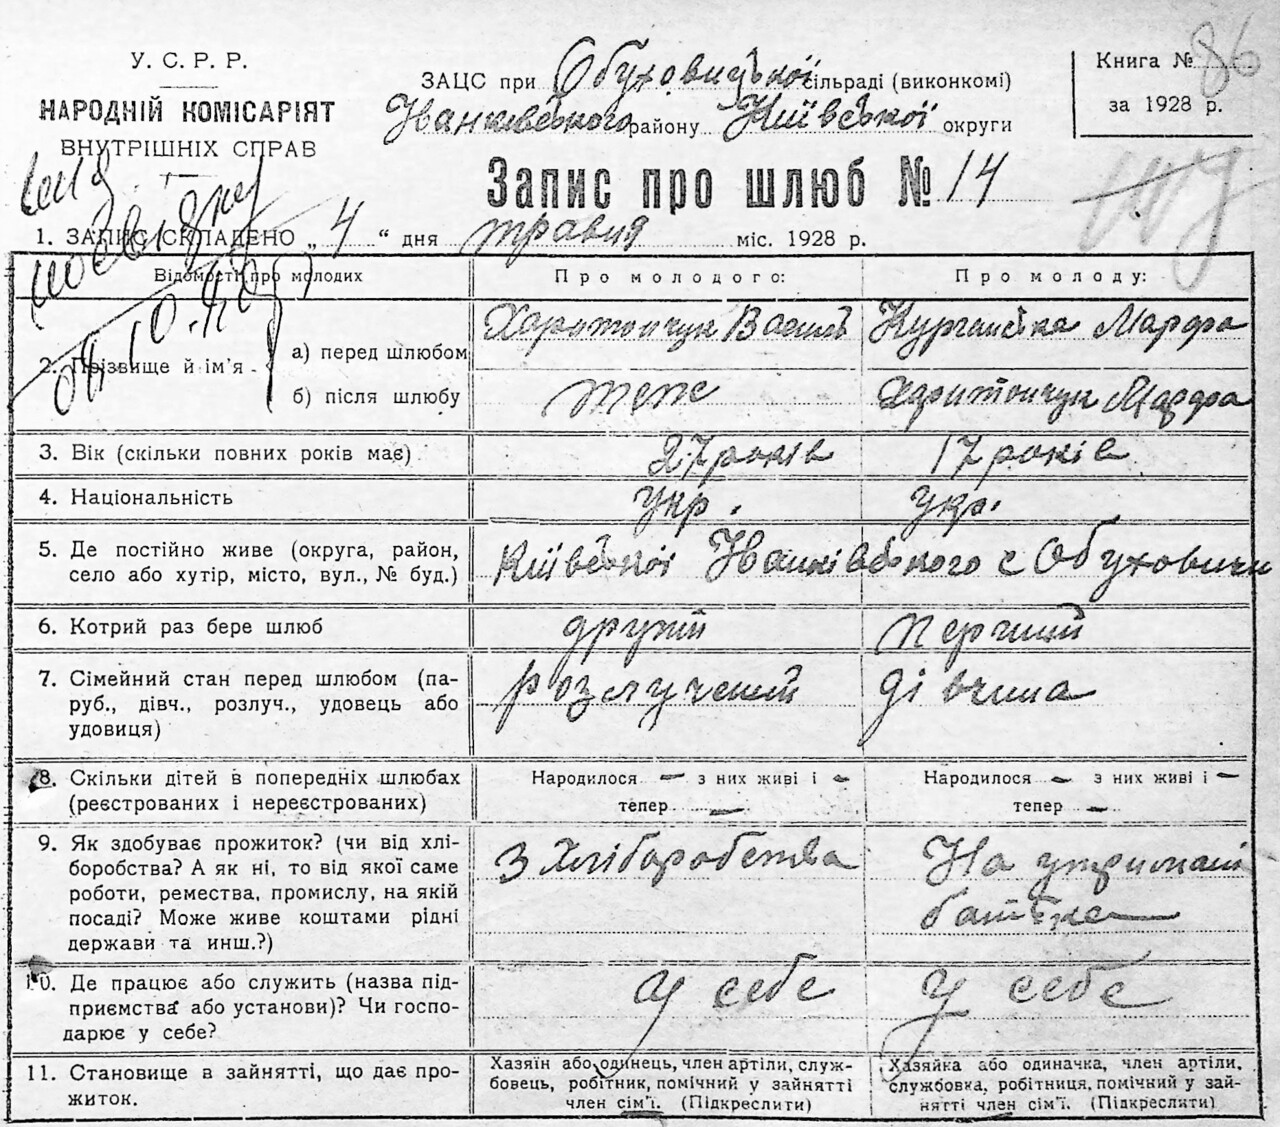 У. С. Р. Р.
НАРОДНІЙ КОМІСАРІЯТ
ВНУТРІШНІХ СПРАВ
ЗАЦС при Обуховицької сільраді (виконкомі)
Іванківського району Київської округи
Книга № 86
за 1928 р.
Запис про шлюб № 14
1. ЗАПИС СКЛАДЕНО „ 4 “ дня травня міс. 1928 р.
Відомості про молодих
Про молодого:
Про молоду:
2. Прізвище й ім'я -
а) перед шлюбом
Харитончук Василь
Марфа
б) після шлюбу
теж
Харитончук Марфа
3. Вік (скільки повних років має)
27 років
17 років
4. Національність
укр.
укр.
5. Де постійно живе (округа, район,
село або хутір, місто, вул., № буд.)
Київської Іванківського с Обуховичи
6. Котрий раз бере шлюб
другий
перший
7. Сімейний стан перед шлюбом (па-
руб., дівч., розлуч., удовець або
удовиця)
розлучений
дівчина
8. Скільки дітей в попередніх шлюбах
(реєстрованих і нереєстрованих)
Народилося — з них живі і —
тепер —
Народилося — з них живі і —
тепер —
9. Як здобуває прожиток? (чи від хлі-
боробства? А як ні, то від якої саме
роботи, ремества, промислу, на якій
посаді? Може живе коштами рідні
держави та инш.?)
З хліборобства
На утримані
батька
10. Де працює або служить (назва під-
приємства або установи)? Чи госпо-
дарює у себе?
у себе
у себе
11. Становище в зайнятті, що дає про-
житок.
Хазяїн або одинець, член артіли, служ-
бовець, робітник, помічний у зайнятті
член сім'ї. (Підкреслити)
Хазяйка або одиначка, член артіли,
службовка, робітниця, помічний у зай-
нятті член сім'ї. (Підкреслити)